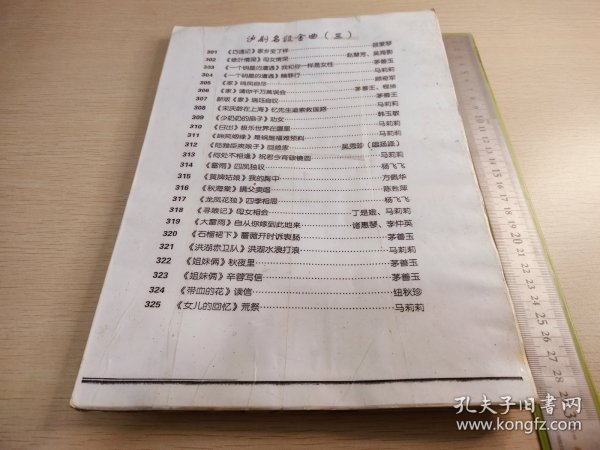 沪剧名段金曲(三)
301 《巧遇记》家乡变了样
302 《绿叶情深》母女情深 赵慧芳、吴海影
303 《一个明星的遭遇》我和你一样是女性 茅善玉
304 《一个明星的遭遇》 马莉莉
305 《家》鸣凤自尽 顾咪军
306 《家》请你千万莫误会 茅善玉、程臻
307 新版《家》瑞珏自叹 茅善玉
308 《宋庆龄在上海》忆先生追索救国路 马莉莉
309 《少奶奶的扇子》劝女 韩玉敏
310 《日出》极乐世界在哪里 马莉莉
311 是祸是福难预料 马莉莉
312 《陆雅臣卖娘子》回娘家 吴素秋
313 《何处不相逢》祝君今宵破镜圆 马莉莉
314 《雷雨》四凤独叹 杨飞飞
315 《黄牌姑娘》我的胸中 方佩华
316 《秋海棠》瞒父卖唱 陈甦萍
317 《龙凤花烛》四季相思 杨飞飞
318 《寻娘记》母女相会 丁是娥、马莉莉
319 《大雷雨》自从你嫁到此地来 诸惠琴、李仲英
320 《石榴裙下》蔷薇开时诉衷肠 茅善玉
321 《洪湖赤卫队》洪湖水浪打浪 马莉莉
322 《姐妹俩》秋夜里 茅善玉
323 《姐妹俩》辛蓉写信 茅善玉
324 《带血的花》读信 纽秋珍
325 《女儿的回忆》荒祭 马莉莉
孔夫子旧书网
www.kongfz.com